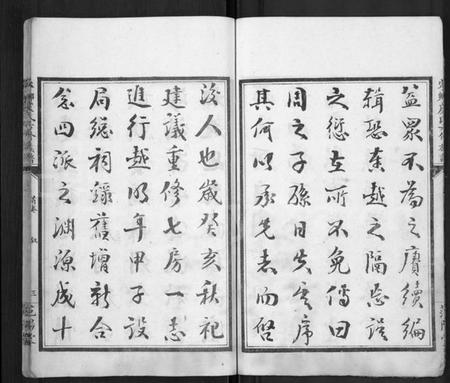 益眾不為之賡續編
輯恐秦越之隔誤
之愆在所不免倘曰
周之子孫日失其序
其何以承先志而啓
後人也歲癸亥秋祀
建議重修七房一志
進行越明年甲子設
局總祠錄舊增新合
念四派之淵源成十
叙
三